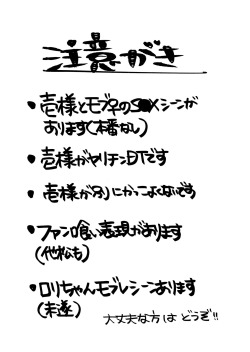 注意がき
• 壱様とモブ子のS●Xシーンが
あります(本番なし)
• 壱様がヤリチンDTです
• 壱様が別にかっこよくないです
• ファン喰い表現があります
(他松も)
• ロリちゃんモブレシーンあります
(未遂)
大丈夫な方は どうぞ!!